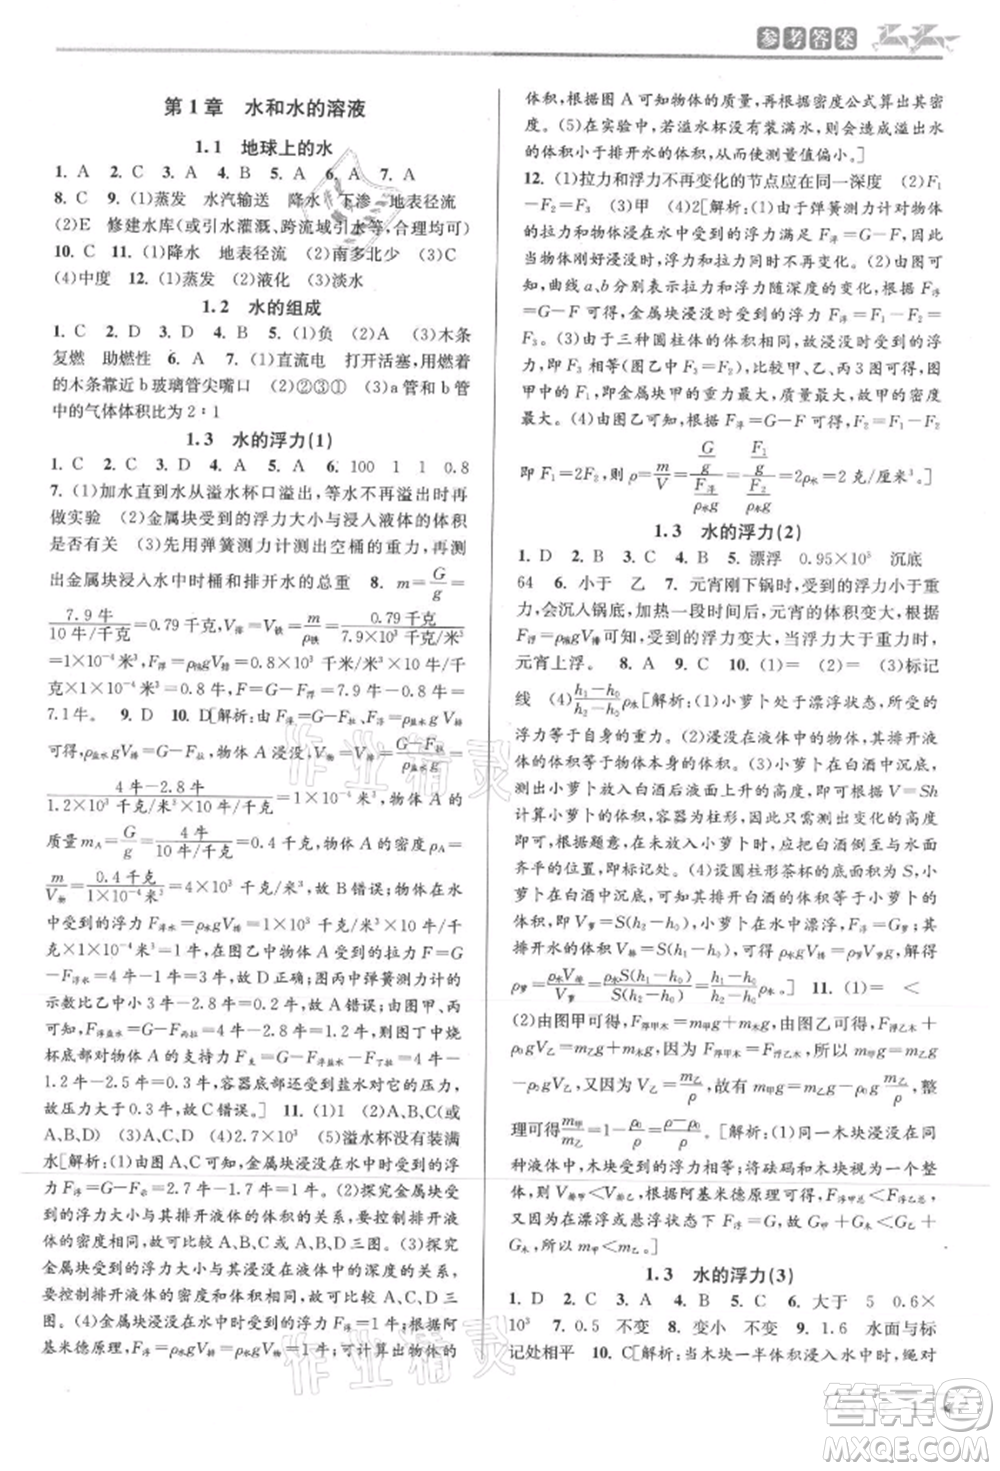 参考答案
第 1 章　水和水的溶液
1.1　地球上的水
1. A　2. D　3. B　4. C　5. A　6. A　7. A
8. C　9. (1)蒸发　水汽输送　降水　下渗　地表径流
(2)E　修建水库(或引水灌溉、跨流域引水等,合理均可)
10. C　11. (1)降水　地表径流　(2)南多北少　(3)C
(4)中度　12. (1)蒸发　(2)液化　(3)淡水
1.2　水的组成
1. C　2. D　3. D　4. B　5. (1)负　(2)A　(3)木条
复燃　助燃性　6. A　7. (1)直流电　打开活塞,用燃着
的木条靠近 b 玻璃管尖嘴口　(2)②③①　(3)a 管和 b 管
中的气体体积比为 2∶1
1.3　水的浮力(1)
1. C　2. C　3. D　4. A　5. A　6. 100　1　1　0.8
7. (1)加水直到水从溢水杯口溢出,待水不再溢出时再
做实验　(2)金属块受到的浮力大小与浸入液体的体积
是否有关　(3)先用弹簧测力计测出空桶的重力,再测
出金属块浸没在水中时桶和排开水的总重　8. m=G/g=
7.9 牛/10 牛/千克=0.79 千克,V排=V铁=m/ρ铁=0.79 千克/7.9×10³ 千克/米³
=1×10⁻⁴ 米³,F浮=ρ液gV排=0.8×10³ 千克/米³×10 牛/千
克×1×10⁻⁴ 米³=0.8 牛,F拉=G-F浮=7.9 牛-0.8 牛=
7.1 牛。　9. D　10. D[解析:由 F浮=G-F拉=ρ盐水gV排
可得,ρ盐水gV排=G-F拉,物体 A 浸没,V物=V排=G-F拉/ρ盐水g=
4 牛-2.8 牛/1.2×10³ 千克/米³×10 牛/千克=1×10⁻⁴ 米³,物体 A 的
质量 mA=G/g=4 牛/10 牛/千克=0.4 千克,物体 A 的密度 ρA=
m/V物=0.4 千克/1×10⁻⁴ 米³=4×10³ 千克/米³,故 B 错误;物体 A 在水
中受到的浮力 F浮水=ρ水gV排=1×10³ 千克/米³×10 牛/千
克×1×10⁻⁴ 米³=1 牛,在图乙中物体 A 受到的拉力 F=G
-F浮水=4 牛-1 牛=3 牛,故 D 正确;图丙中弹簧测力计的
示数比乙中小 3 牛-2.8 牛=0.2 牛,故 A 错误;由图甲、丙
可知,F浮盐水=G-F丙拉=4 牛-2.8 牛=1.2 牛,则图丁中烧
杯底部对物体 A 的支持力 F支=G-F浮盐水-F丁拉=4 牛-
1.2 牛-1.5 牛=1.3 牛,容器底部受到盐水的压力、压强
故大于 1.3 牛,故 C 错误。]　11. (1)1　(2)A、B、C(或
A、B、D)　(3)A、C、D　(4)2.7×10³　(5)溢水杯没有装满
水[解析:(1)由图 A、C 可知,金属块浸没在水中时受到的浮
力 F浮=G-F示=2.7 牛-1.7 牛=1 牛。(2)探究金属块受到
的浮力大小与其排开液体的体积的关系,要控制排开液体
的密度不变,由图知是 A、B、C 或 A、B、D 三图。(3)探究
金属块受到的浮力大小与液体的密度的关系,需要控制
金属块排开液体的体积相同,由图知是 A、C、D 三
图。(4)金属块浸没在水中时受到的浮力 F浮=1 牛,由阿
基米德原理,F浮=ρ液gV排=1 牛;可计算出物体的
体积,根据图 A 可知物体的质量,再根据密度公式算出其密
度。(5)在实验中,若溢水杯没有装满水,会导致溢出水
的体积小于排开水的体积,从而使测量值偏小。]
12. (1)拉力和浮力不再变化的节点应在同一深度　(2)F₁
-F₂=F₃　(3)甲　(4)2[解析:(1)由于弹簧测力计对物体的
拉力和物体在水中受到的浮力满足 F浮=G-F,因此当
物体刚好浸没时,拉力与浮力均不再变化。(2)由图乙可
知,曲线 a、b 分别表示拉力和浮力随深度的变化,根据 F浮
=G-F 可知,金属块浸没时受到的浮力 F浮=F₁-F₂=
F₃。(3)由于三种圆柱体的体积相同,故浸没时受到的浮力
相同,即 F₃=F₁-F₂,比较甲、乙、丙 3 图可得,图
甲中的 F₁、F₂ 最大,质量最大,故金属块甲的密度
最大。(4)由图乙可知,根据 F浮=G-F 可得,F₁-F₂=F₂,
即 F₁=2F₂,所以 ρ=m/V=G/g/F浮/ρ水g=F₁/g/F₂/ρ水g=2ρ水=2 克/厘米³。]
1.3　水的浮力(2)
1. D　2. D　3. C　4. B　5. 漂浮　0.95×10³　沉底
64　6. 小于　乙　7. 元宵刚下锅时,受到的浮力小于重
力,会沉入锅底,加热一段时间后,元宵的体积变大,根据
F浮=ρ液gV排可知,受到的浮力变大,当浮力大于重力时,
元宵上浮。　8. A　9. C　10. (1)=　(2)=　(3)标记
线　(4)h₁-h₀/h₂-h₀ρ水[解析:(1)小萝卜处于漂浮状态,所受的
浮力等于自身的重力。(2)浸没在液体中的物体,排开液体的
体积等于物体自身的体积。(3)小萝卜在白酒中沉底,
测出小萝卜放入后液面上升的高度,利用 V=Sh 可计算
出小萝卜的体积,容器为柱形,故只需测出变化的高度,
根据题意,要测小萝卜体积时,应把白酒倒至与水面
齐平的位置,即标记处。(4)设圆柱形茶杯的底面积为 S,小
萝卜在白酒中沉底,可知其排开白酒的体积等于小萝卜的
体积,V萝=S(h₂-h₀),小萝卜在水中漂浮,F浮=G萝;其
排开水的体积 V排=S(h₁-h₀),可得 ρ水gV排=ρ萝gV萝,解得
ρ萝=ρ水V排/V萝=ρ水S(h₁-h₀)/S(h₂-h₀)=h₁-h₀/h₂-h₀ρ水]　11. (1)=　<
(2)由图甲可得,F浮甲木=m甲g+m木g,由图乙可得,F浮乙木=
ρ₀gV乙+m木g,因为 F浮甲木=F浮乙木,所以 m甲g+m木g=
ρ₀gV乙+m木g,又因为 V乙=m乙/ρ,故有 m甲g=m乙gρ₀/ρ,整
理可得m甲/m乙=ρ₀/ρ[解析:(1)同一木块浸没在水中,受到的
浮力相同,将砝码和木块当作一个整体,
V排甲=V排乙,根据阿基米德原理可得,F浮甲总<F浮乙总,
由于在漂浮或悬浮状态下 F浮=G,所以有 G甲+G木<G乙+
G木,即 m甲<m乙。]
1.3　水的浮力(3)
1. D　2. C　3. A　4. C　5. C　6. 大于　5　0.6×
10³　7. 0.5　不变　8. 变小　不变　9. 1.6　水面与标
记处相平　10. C[解析:当木块一半体积浸入水中时,绳对
作业精灵
答案圈
MXQE.COM